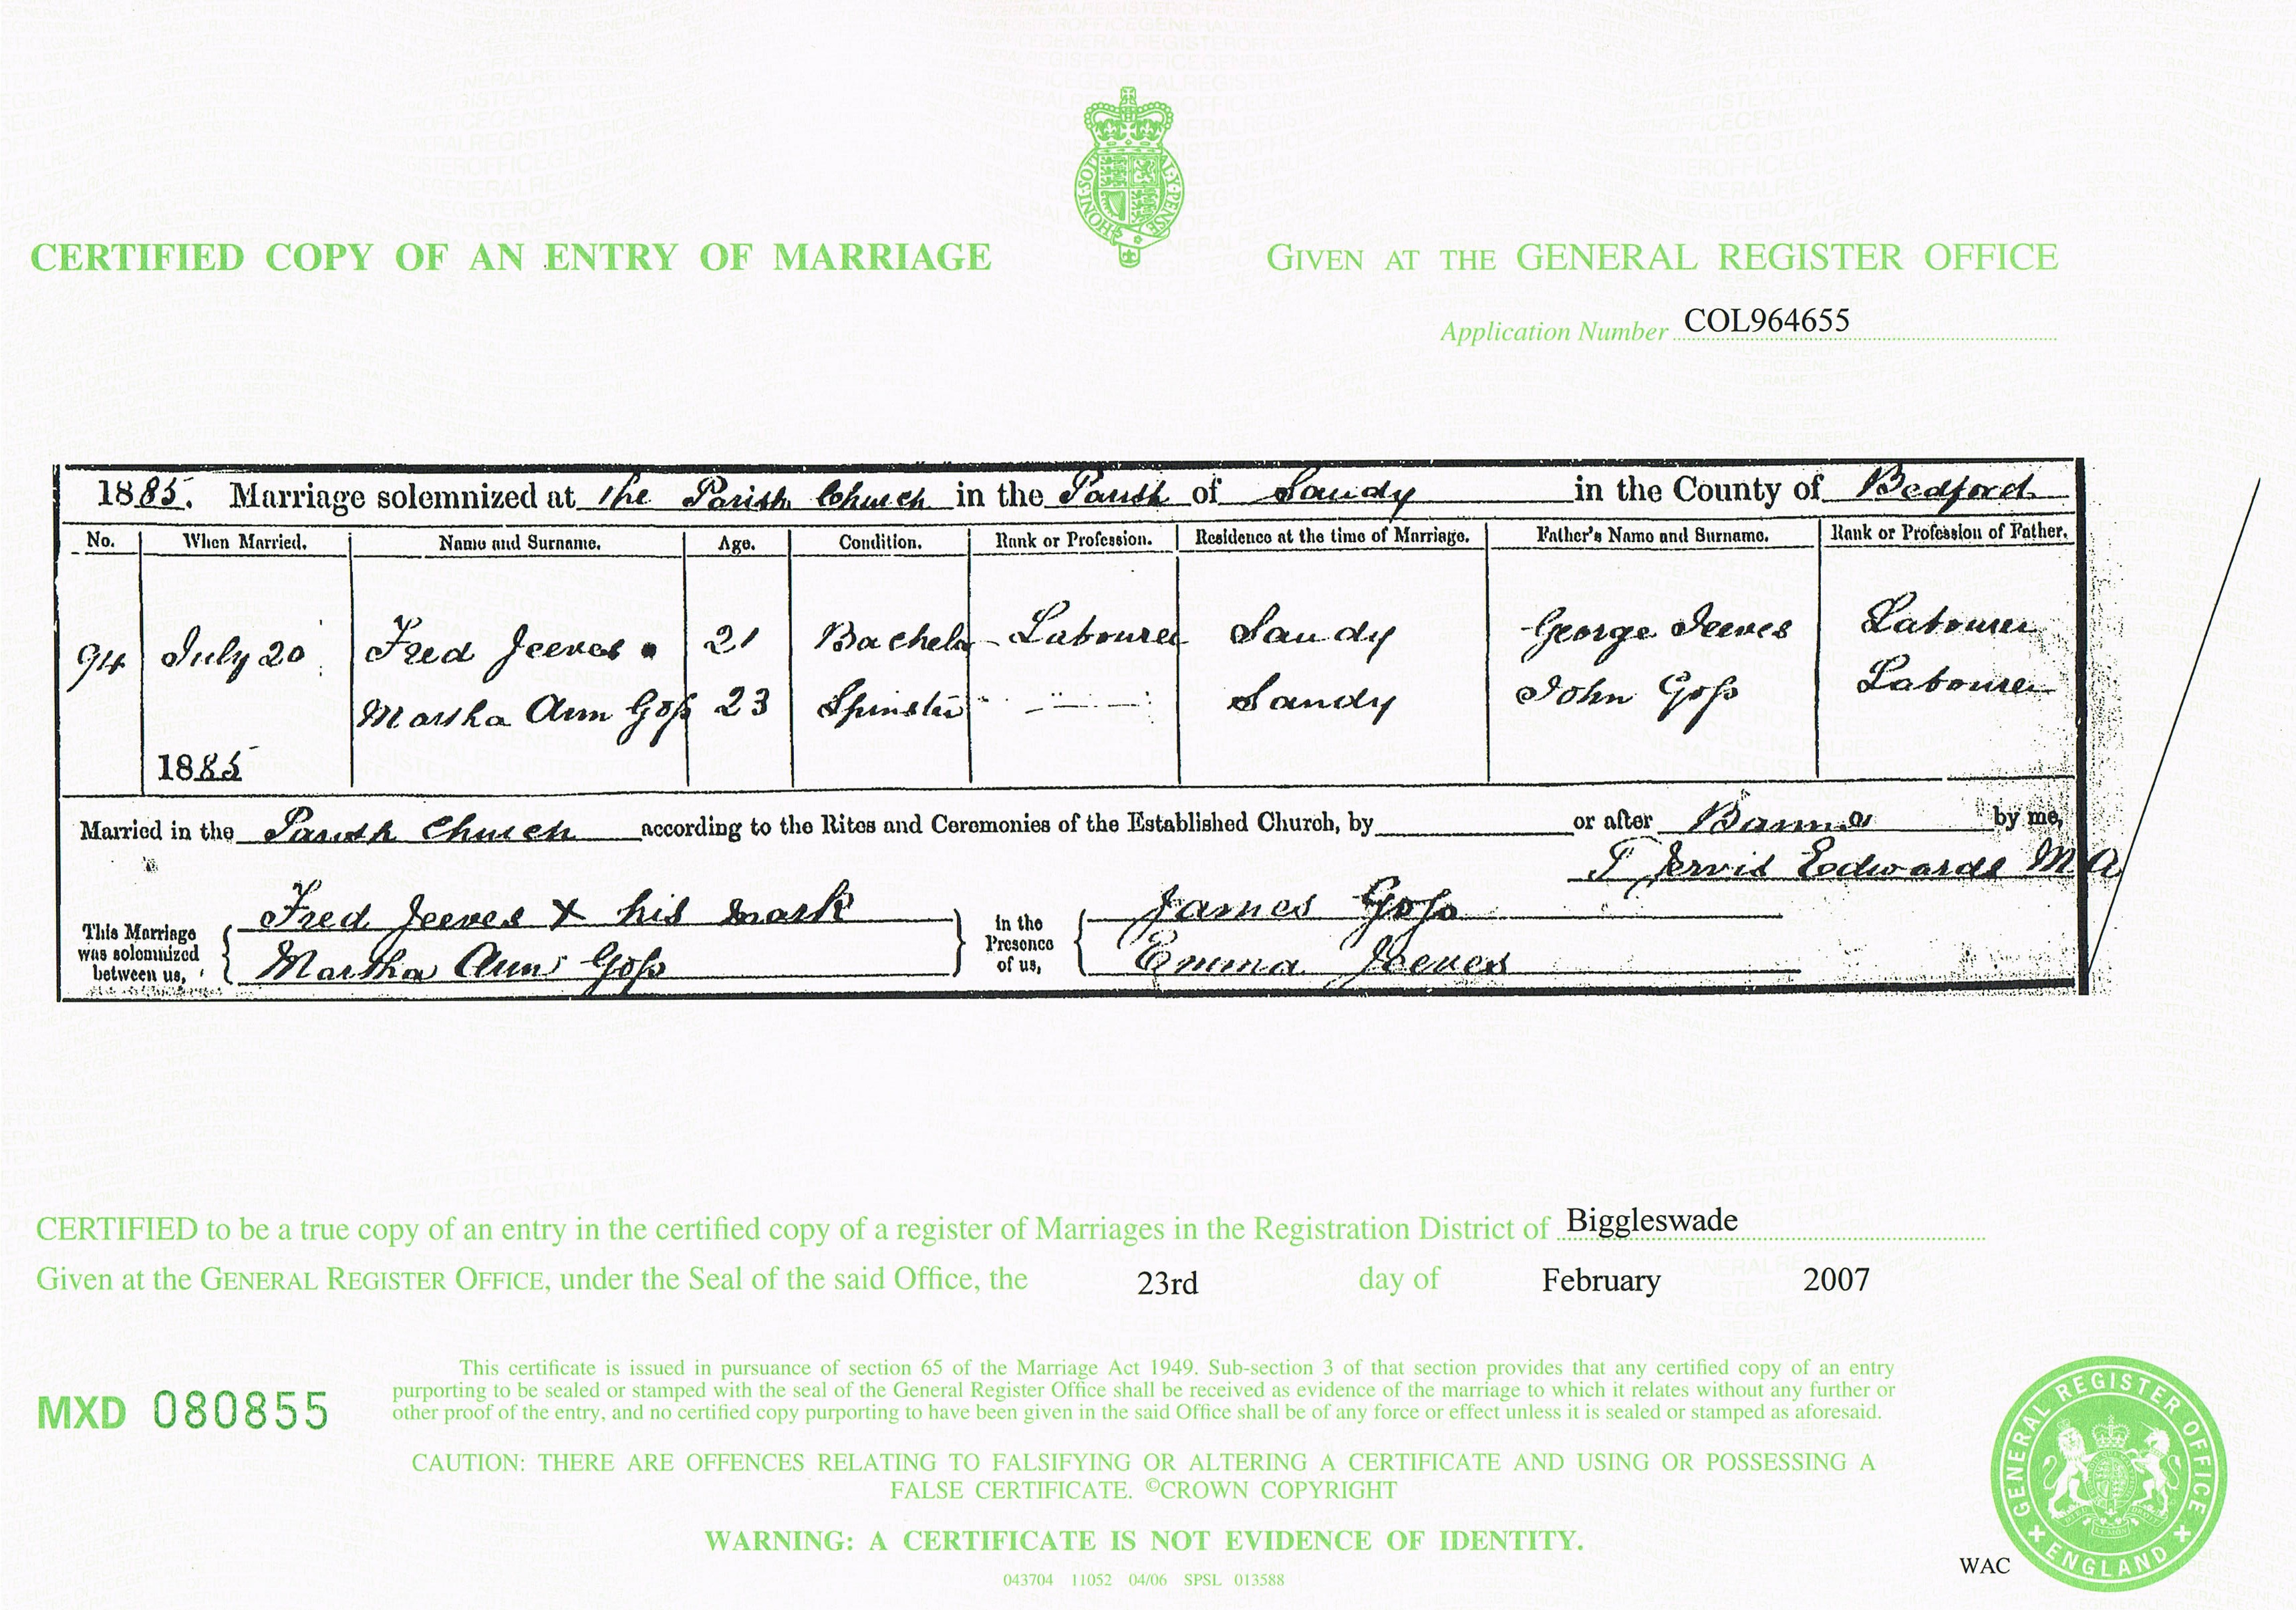 CERTIFIED COPY OF AN ENTRY OF MARRIAGE
GIVEN AT THE GENERAL REGISTER OFFICE
Application Number COL964655
1885. Marriage solemnized at the Parish Church in the Parish of Sandy in the County of Bedford
No. When Married. Name and Surname. Age. Condition. Rank or Profession. Residence at the time of Marriage. Father's Name and Surname. Rank or Profession of Father.
94 July 20 Fred Jeeves 21 Bachelor Labourer Sandy George Jeeves Labourer
Martha Ann Goſs 23 Spinster Sandy John Goſs Labourer
1885
Married in the Parish Church according to the Rites and Ceremonies of the Established Church, by or after Banns by me,
Jervis Edwards M.A
This Marriage was solemnized between us,
Fred Jeeves X his mark
Martha Ann Goſs
in the Presence of us,
James Goſs
Emma Jeeves
CERTIFIED to be a true copy of an entry in the certified copy of a register of Marriages in the Registration District of Biggleswade
Given at the GENERAL REGISTER OFFICE, under the Seal of the said Office, the 23rd day of February 2007
This certificate is issued in pursuance of section 65 of the Marriage Act 1949. Sub-section 3 of that section provides that any certified copy of an entry
purporting to be sealed or stamped with the seal of the General Register Office shall be received as evidence of the marriage to which it relates without any further or
other proof of the entry, and no certified copy purporting to have been given in the said Office shall be of any force or effect unless it is sealed or stamped as aforesaid.
MXD 080855
CAUTION: THERE ARE OFFENCES RELATING TO FALSIFYING OR ALTERING A CERTIFICATE AND USING OR POSSESSING A
FALSE CERTIFICATE. ©CROWN COPYRIGHT
WARNING: A CERTIFICATE IS NOT EVIDENCE OF IDENTITY.
043704 11052 04/06 SPSL 013588
WAC
GENERAL REGISTER OFFICE
ENGLAND